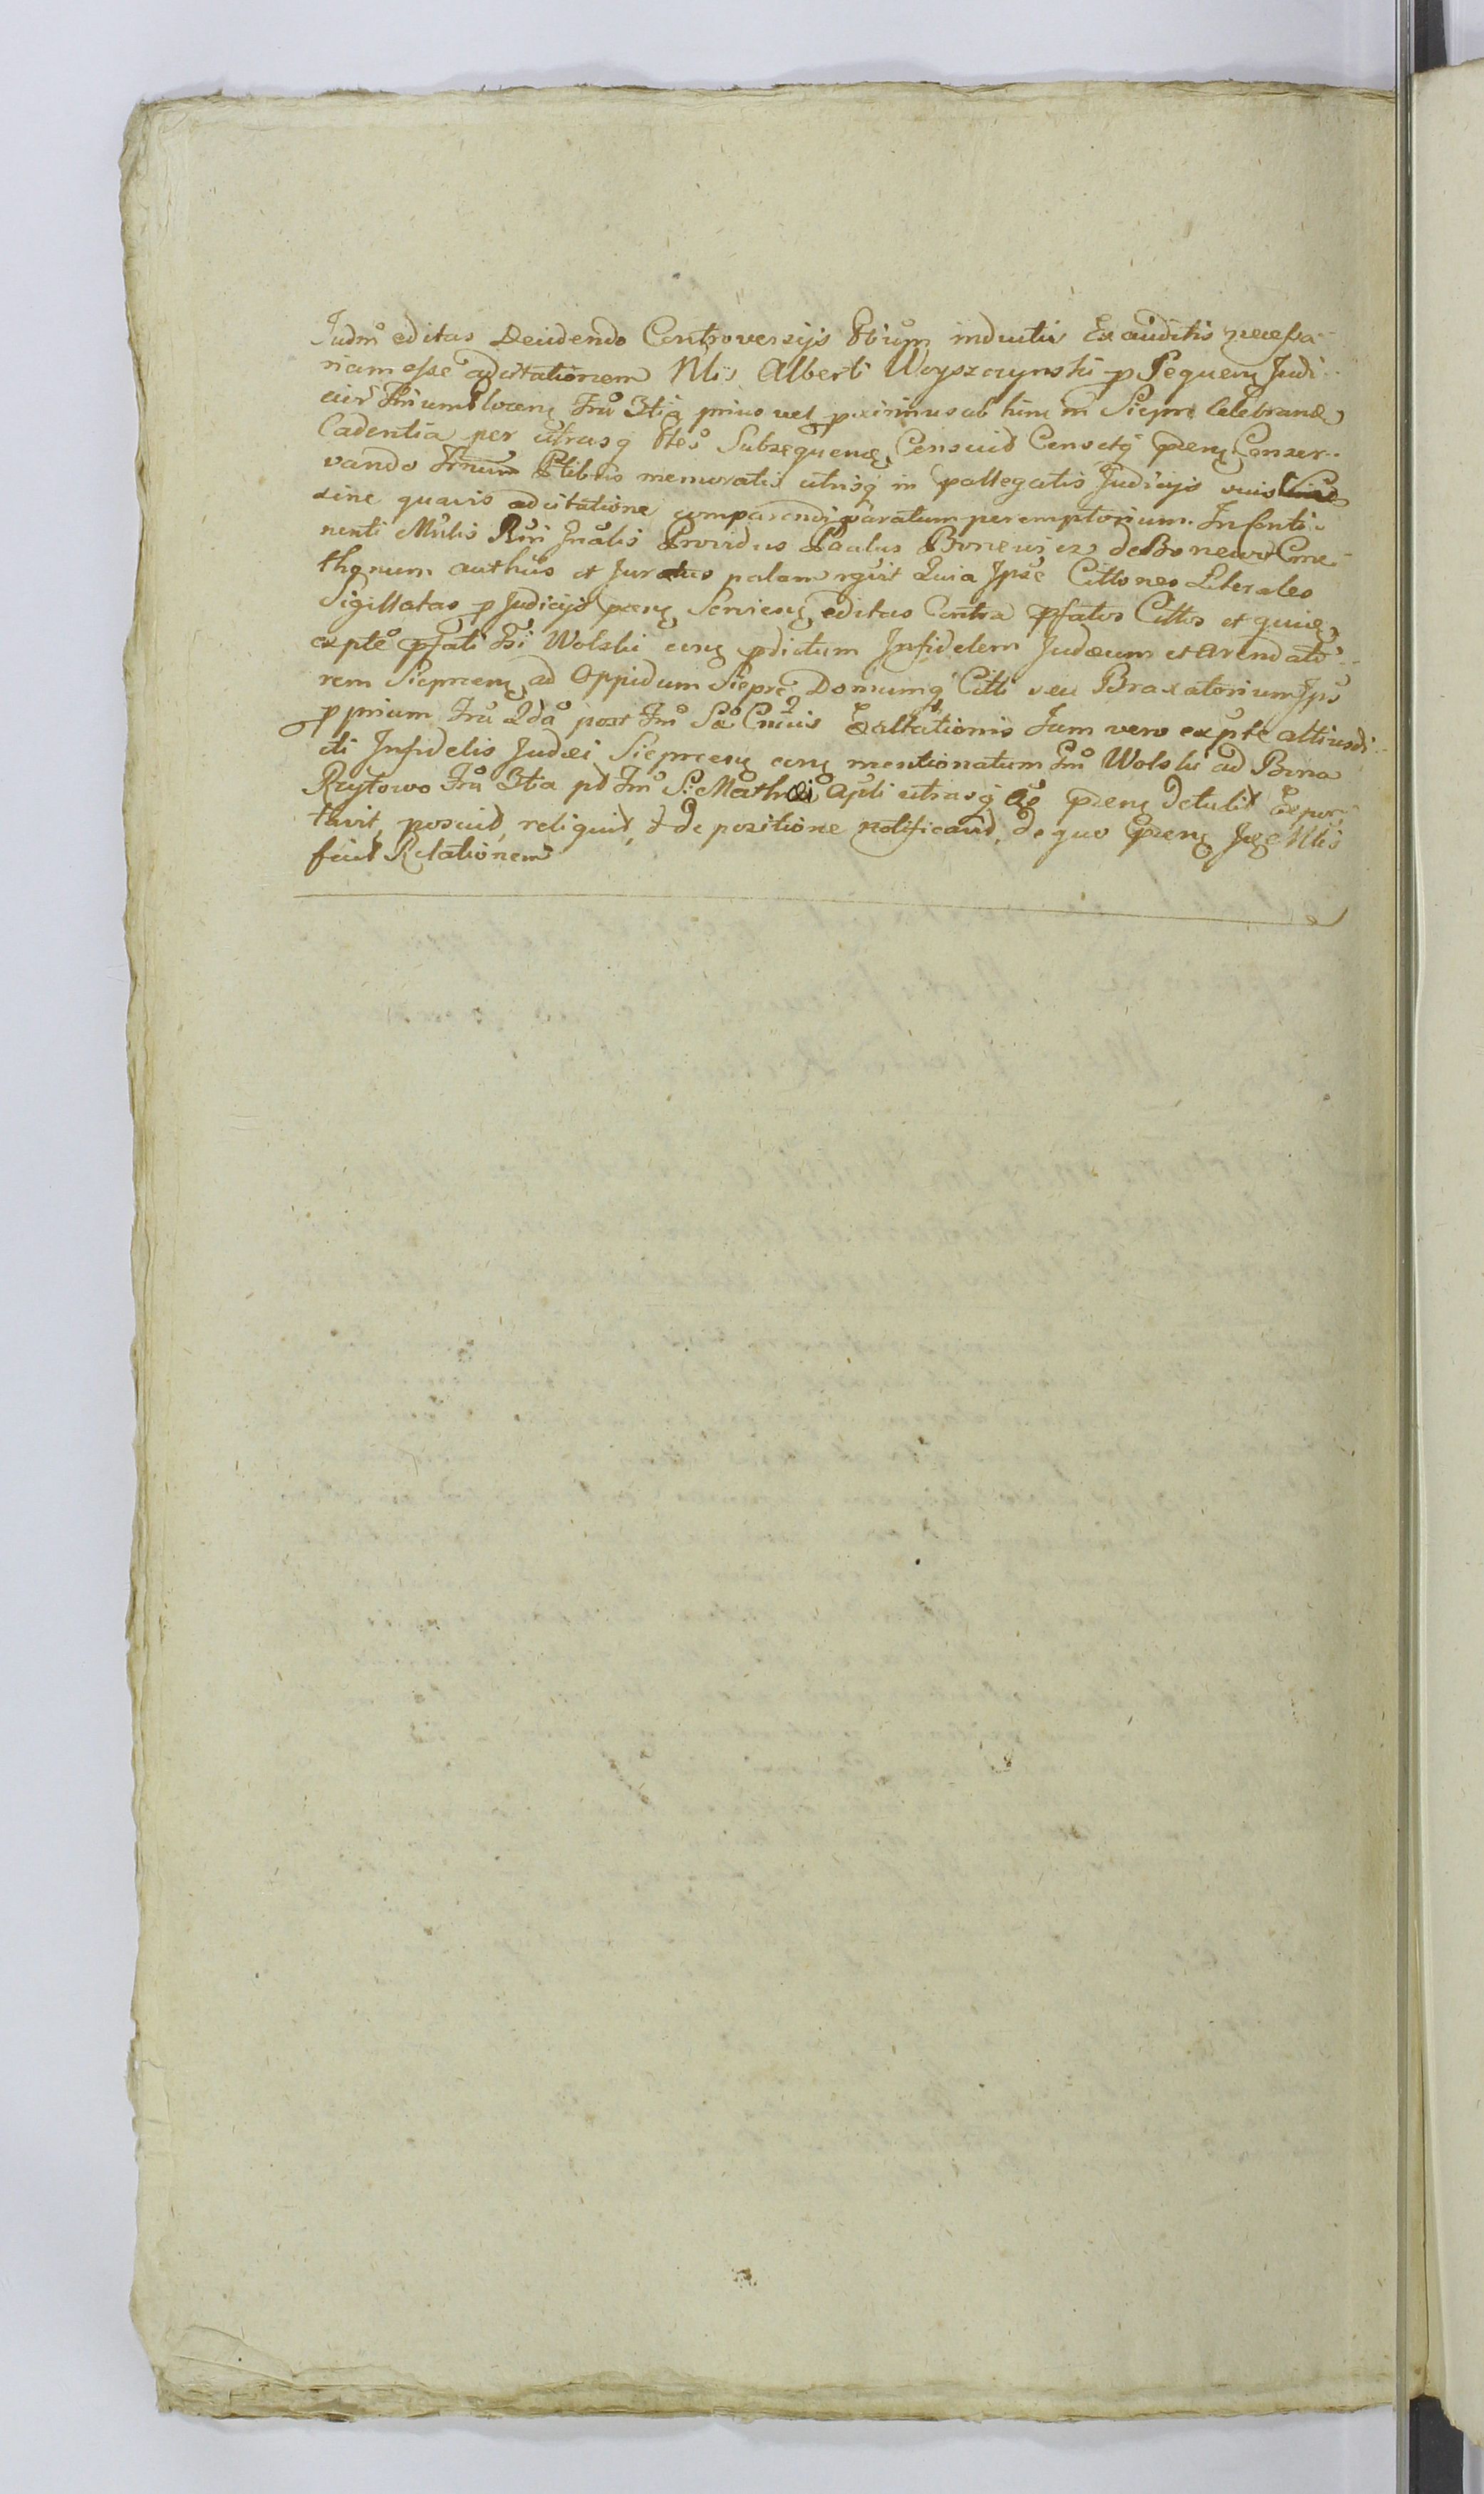 Judm editas Deudendo Controversijs Ptium inductis Exauditis necessa-
riam esse adcitationem Nlis Alberti Woyszczynski p Sequen Judi-
cior Tmium locen Fru 3tia prius vel pximius ab hinc in Siepre Celebrand
Cadentia per utrasq Ptes Subsequend Censuid Censetq pren Conser-
vando Trnum Ptibus memoratis utrisq in pallegatis Judicijs suis
sine quavis adcitatione comparendi paratum peremptorium. In fonti-
nenti Mnlis Rur Jnalis Providus Paulus Bonewicz de Bonewo Cme-
thonum authus et Juratus palam rguit Quia Ipse Cittones Literales
Sigillatas p Judicijs pren Servien editas Contra Pfatos Cittos et quid
ex pte pfati Fsi Wolski eun pdictum Infidelem Judæum et Arendato-
rem Sieprcen ad Oppidum Siepre Domumq Citti seu Braxatorium Ips
pprium Fru 2da post Fm Sæ Crucis Exaltationis Jam vero ex pte altiusdi-
cti Infidelis Judæi Sieprcen eun mentionatum Gm Wolski ad Bona
Rzytowo Fru 3tia pt Fm S: Mathæi Apli utrasq As pren Detulit Expor-
tavit, posuid, reliquid, & de positione notificavid, de quo pren Jes Mlis
fecit Relationem